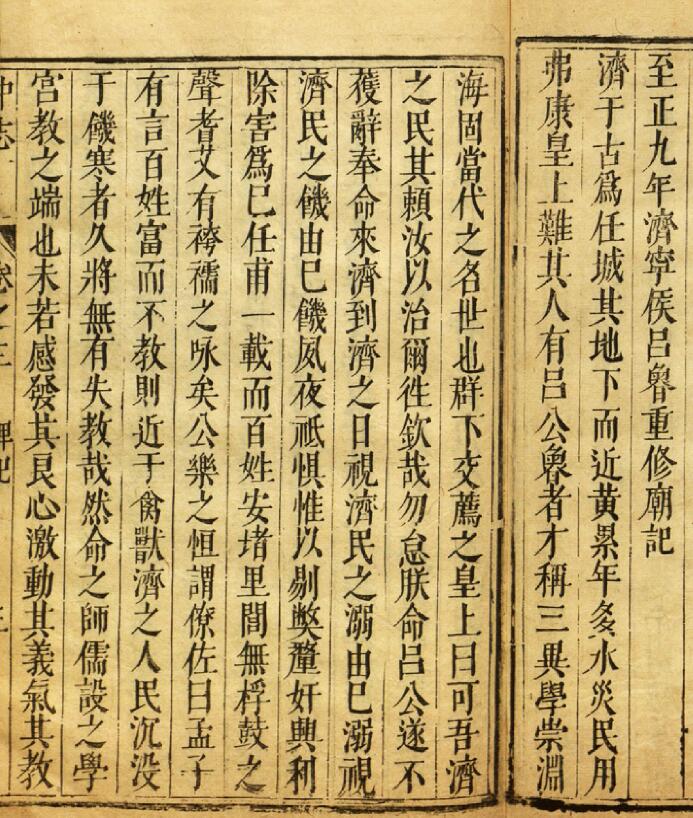 至正九年濟寧侯吕魯重修廟記
濟于古爲任城其地下而近黄累年多水災民用
弗康皇上難其人有吕公魯者才稱三異學崇淵
海固當代之名世也群下交薦之皇上曰可吾濟
之民其頼汝以治爾徃欽哉勿怠朕命吕公遂不
獲辭奉命來濟到濟之日視濟民之溺由已溺視
濟民之饑由已饑夙夜祗惧惟以剔獘釐奸興利
除害爲已任甫一載而百姓安堵里閭無桴鼓之
聲耆艾有袴襦之咏矣公樂之恒謂僚佐曰孟子
有言百姓富而不教則近于禽獸濟之人民沉没
于饑寒者久將無有失教哉然命之師儒設之學
宫教之端也未若感發其良心激動其義氣其教